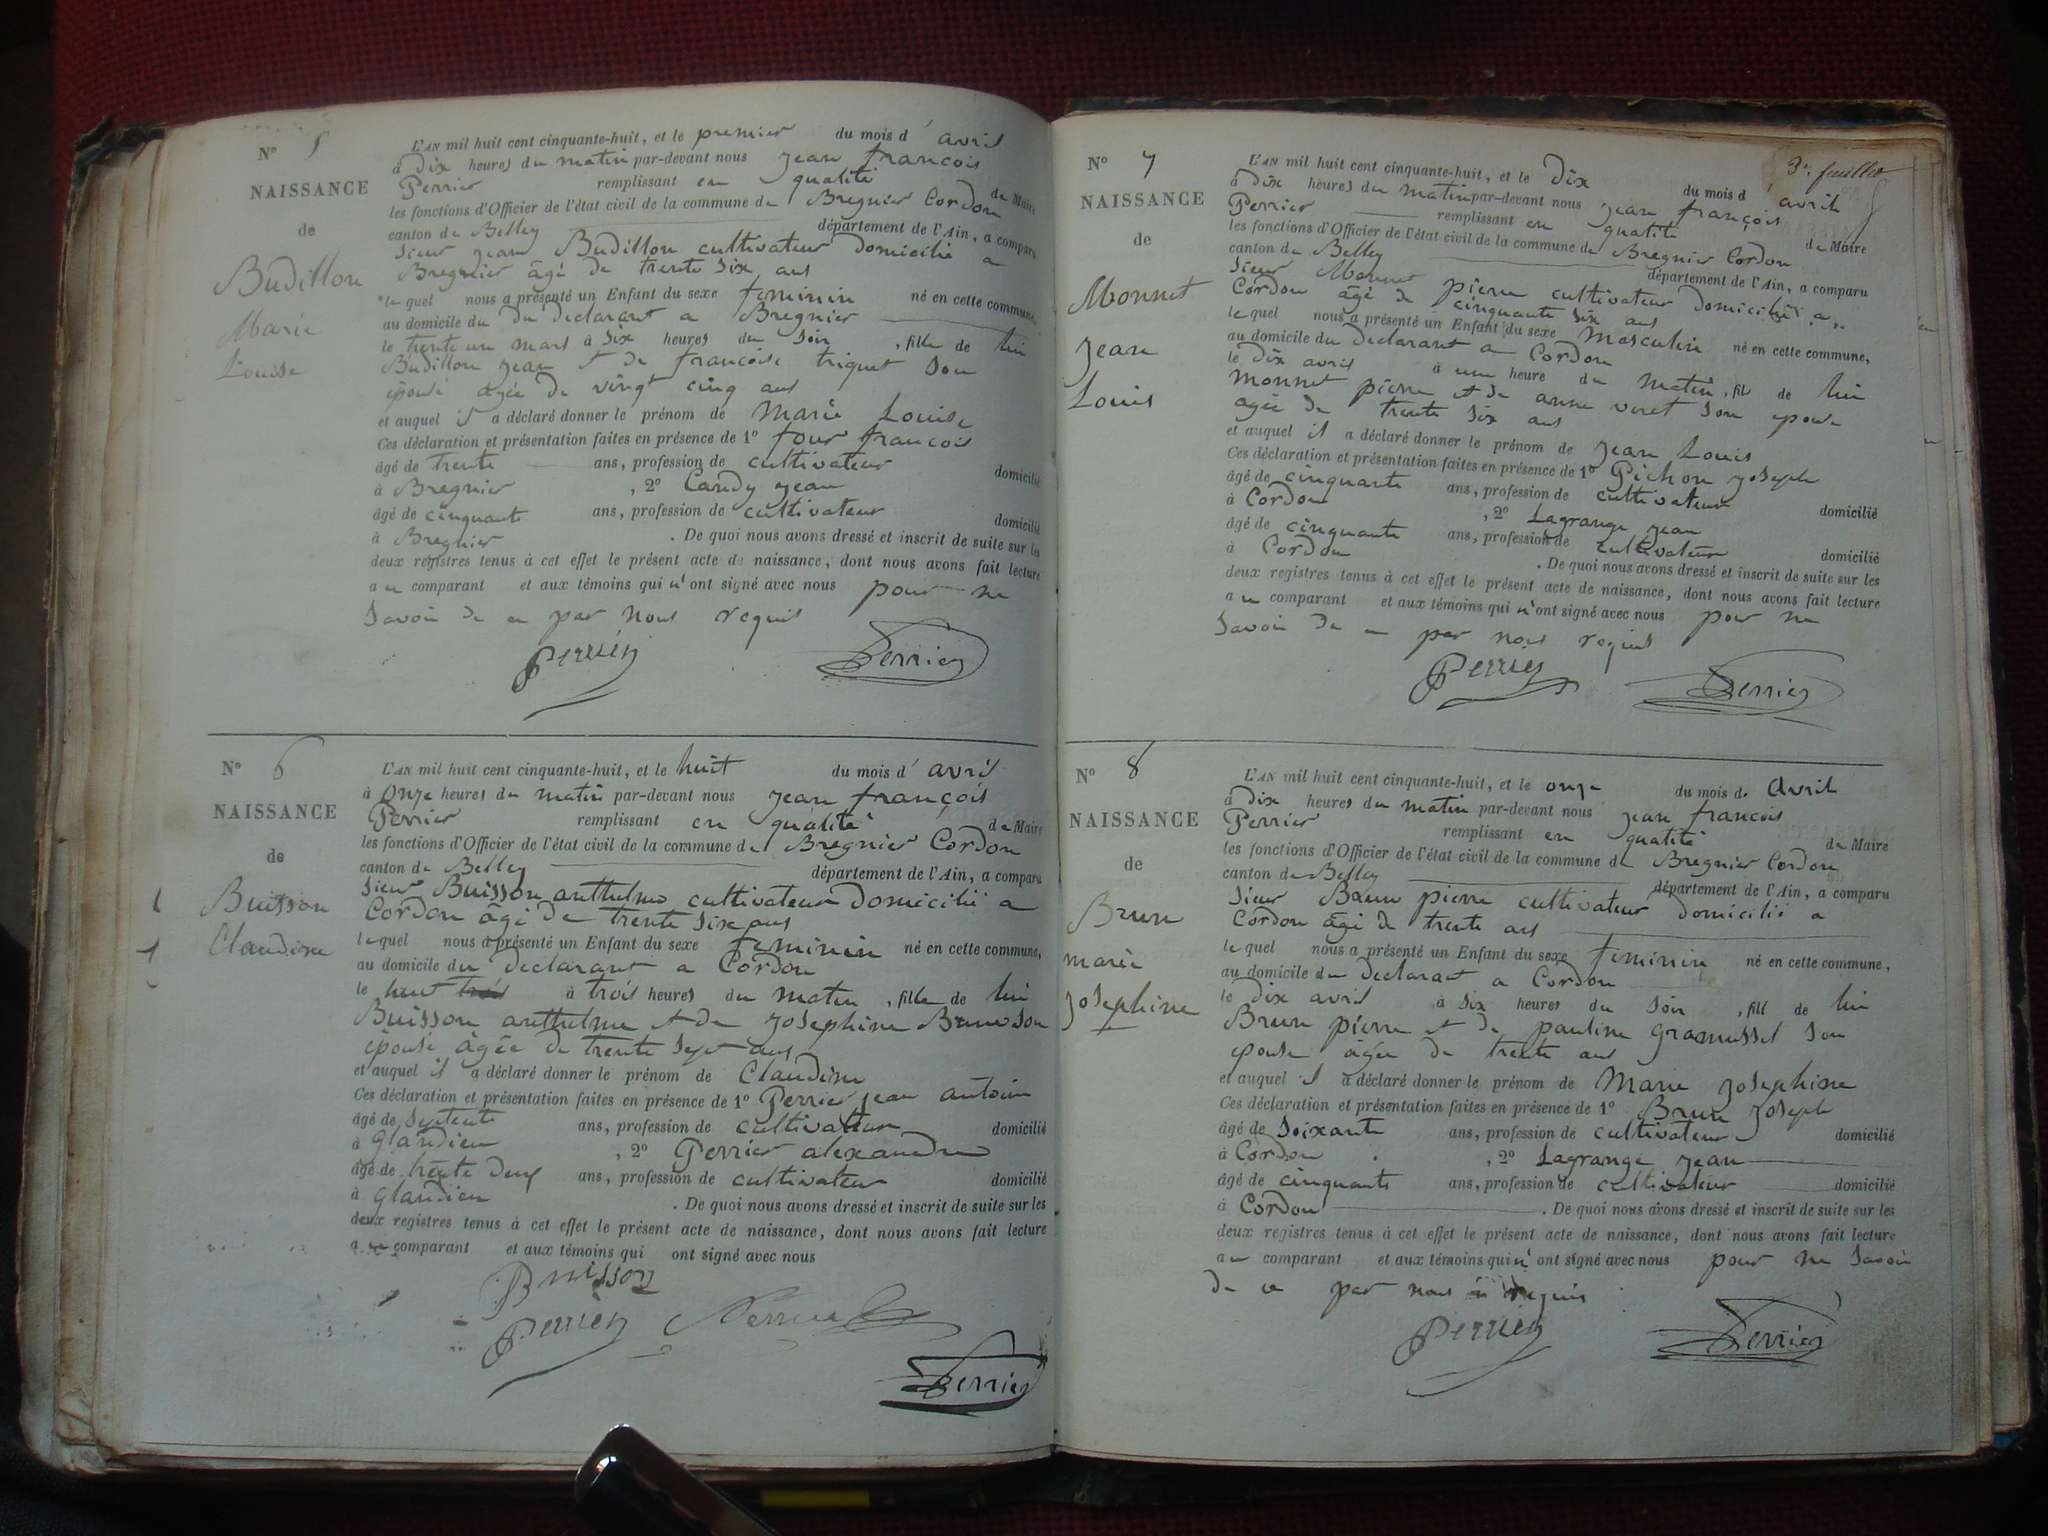 N° 5
NAISSANCE
de
Budillon
Marie
Louise
L'AN mil huit cent cinquante-huit, et le premier du mois d' avril
à dix heures du matin par-devant nous jean françois
Perrier remplissant en qualité de Maire
les fonctions d'Officier de l'état civil de la commune de Bregnier Cordon
canton de Belley département de l'Ain, a comparu
Sieur jean Budillon cultivateur domicilié a
Bregnier âgé de trente six ans
lequel nous a présenté un Enfant du sexe feminin né en cette commune,
au domicile du du declarant a Bregnier
le trente un mars à six heures du soir , fille de lui
Budillon jean et de françoise triquet son
epouse agée de vingt cinq ans
et auquel il a déclaré donner le prénom de Marie Louise
Ces déclaration et présentation faites en présence de 1° four francois
âgé de trente ans, profession de cultivateur domicilié
à Bregnier , 2° Candy jean
âgé de cinquante ans, profession de cultivateur domicilié
à Bregnier . De quoi nous avons dressé et inscrit de suite sur les
deux registres tenus à cet effet le présent acte de naissance, dont nous avons fait lecture
au comparant et aux témoins qui n'ont signé avec nous pour ne
Savoir de ce par nous requis
Perrier Perrier
N° 6
NAISSANCE
de
Buisson
Claudine
L'AN mil huit cent cinquante-huit, et le huit du mois d' avril
à onze heures du matin par-devant nous jean françois
Perrier remplissant en qualité de Maire
les fonctions d'Officier de l'état civil de la commune de Bregnier Cordon
canton de Belley département de l'Ain, a comparu
Sieur Buisson anthelme cultivateur domicilié a
Cordon âgé de trente six ans
lequel nous a présenté un Enfant du sexe feminin né en cette commune,
au domicile du declarant a Cordon
le huit trois à trois heures du matin , fille de lui
Buisson anthelme et de josephine Brun son
epouse âgée de trente sept ans
et auquel il a déclaré donner le prénom de Claudine
Ces déclaration et présentation faites en présence de 1° Perrier jean antoine
âgé de septente ans, profession de cultivateur domicilié
à Glandieu , 2° Perrier alexandre
âgé de trente deux ans, profession de cultivateur domicilié
à Glandieu . De quoi nous avons dressé et inscrit de suite sur les
deux registres tenus à cet effet le présent acte de naissance, dont nous avons fait lecture
au comparant et aux témoins qui ont signé avec nous
Buisson
Perrier
Perrier
3e feuillet
N° 7
NAISSANCE
de
Monnet
Jean
Louis
L'AN mil huit cent cinquante-huit, et le dix du mois d' avril
à dix heures du matin par-devant nous jean françois
Perrier remplissant en qualité de Maire
les fonctions d'Officier de l'état civil de la commune de Bregnier Cordon
canton de Belley département de l'Ain, a comparu
Sieur Monnet pierre cultivateur domicilié a
Cordon âgé de cinquante six ans
lequel nous a présenté un Enfant du sexe Masculin né en cette commune,
au domicile du declarant a Cordon
le dix avril à une heure du matin , fil de lui
monnet pierre et de anne veret son epouse
agée de trente six ans
et auquel il a déclaré donner le prénom de jean Louis
Ces déclaration et présentation faites en présence de 1° Pichon joseph
âgé de cinquante ans, profession de cultivateur domicilié
à Cordon , 2° Lagrange jean
âgé de cinquante ans, profession de cultivateur domicilié
à Cordon . De quoi nous avons dressé et inscrit de suite sur les
deux registres tenus à cet effet le présent acte de naissance, dont nous avons fait lecture
au comparant et aux témoins qui n'ont signé avec nous pour ne
Savoir de ce par nous requis
Perrier Perrier
N° 8
NAISSANCE
de
Brun
marie
josephine
L'AN mil huit cent cinquante-huit, et le onze du mois d. Avril
à dix heures du matin par-devant nous jean francois
Perrier remplissant en qualité de Maire
les fonctions d'Officier de l'état civil de la commune de Bregnier Cordon
canton de Belley département de l'Ain, a comparu
Sieur Brun pierre cultivateur domicilié a
Cordon âgé de trente ans
lequel nous a présenté un Enfant du sexe feminin né en cette commune,
au domicile du declarant a Cordon
le dix avril à six heures du soir , fill de lui
Brun pierre et de pauline Gramussel son
epouse âgée de trente ans
et auquel il a déclaré donner le prénom de Marie josephine
Ces déclaration et présentation faites en présence de 1° Brun joseph
âgé de soixante ans, profession de cultivateur domicilié
à Cordon , 2° Lagrange jean
âgé de cinquante ans, profession de cultivateur domicilié
à Cordon . De quoi nous avons dressé et inscrit de suite sur les
deux registres tenus à cet effet le présent acte de naissance, dont nous avons fait lecture
au comparant et aux témoins qui n'ont signé avec nous pour ne Savoir
de ce par nous requis
Perrier Perrier